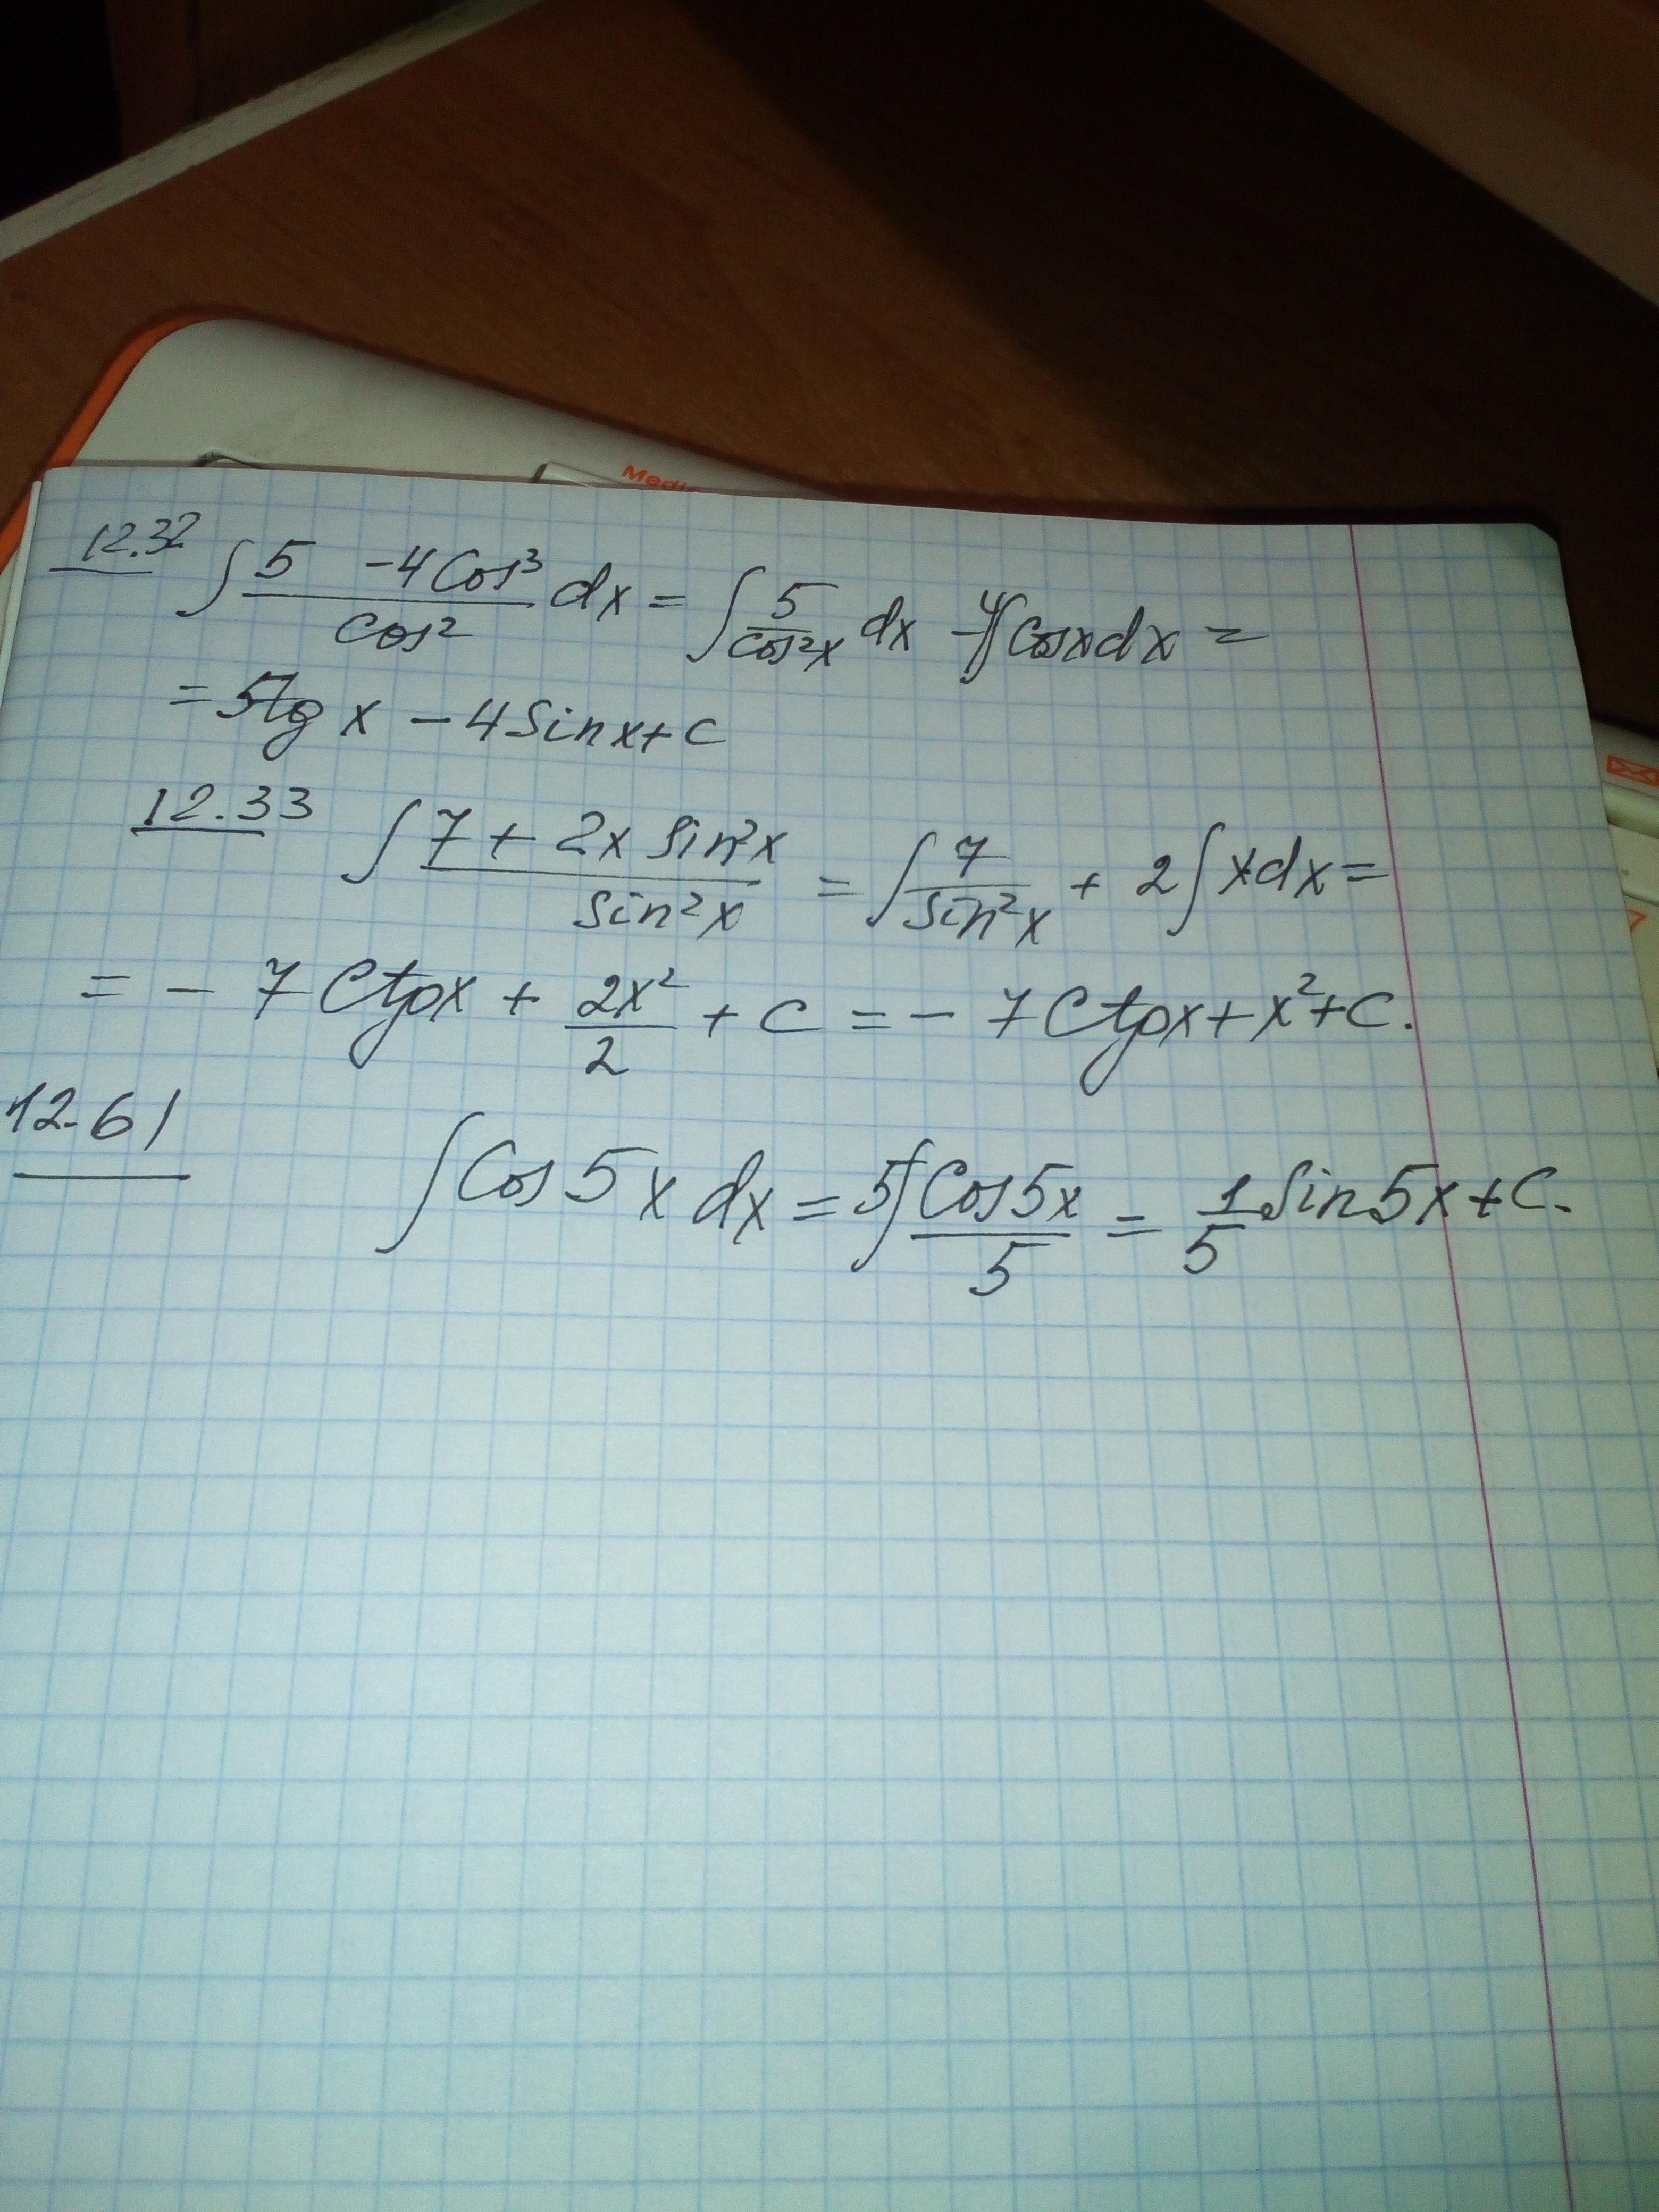 Media
12.32 ∫ (5 - 4Cos³)/(Cos²) dx = ∫ 5/(Cos²x) dx - 4∫Cosxdx =
= 5tg x - 4Sinx + C
12.33 ∫ (7 + 2x Sin²x)/(Sin²x) = ∫ 7/(Sin²x) + 2∫xdx =
= - 7Ctgx + 2x²/2 + C = - 7Ctgx + x² + C.
12.61 ∫Cos 5x dx = 5∫ Cos5x/5 = 1/5 Sin5x + C.